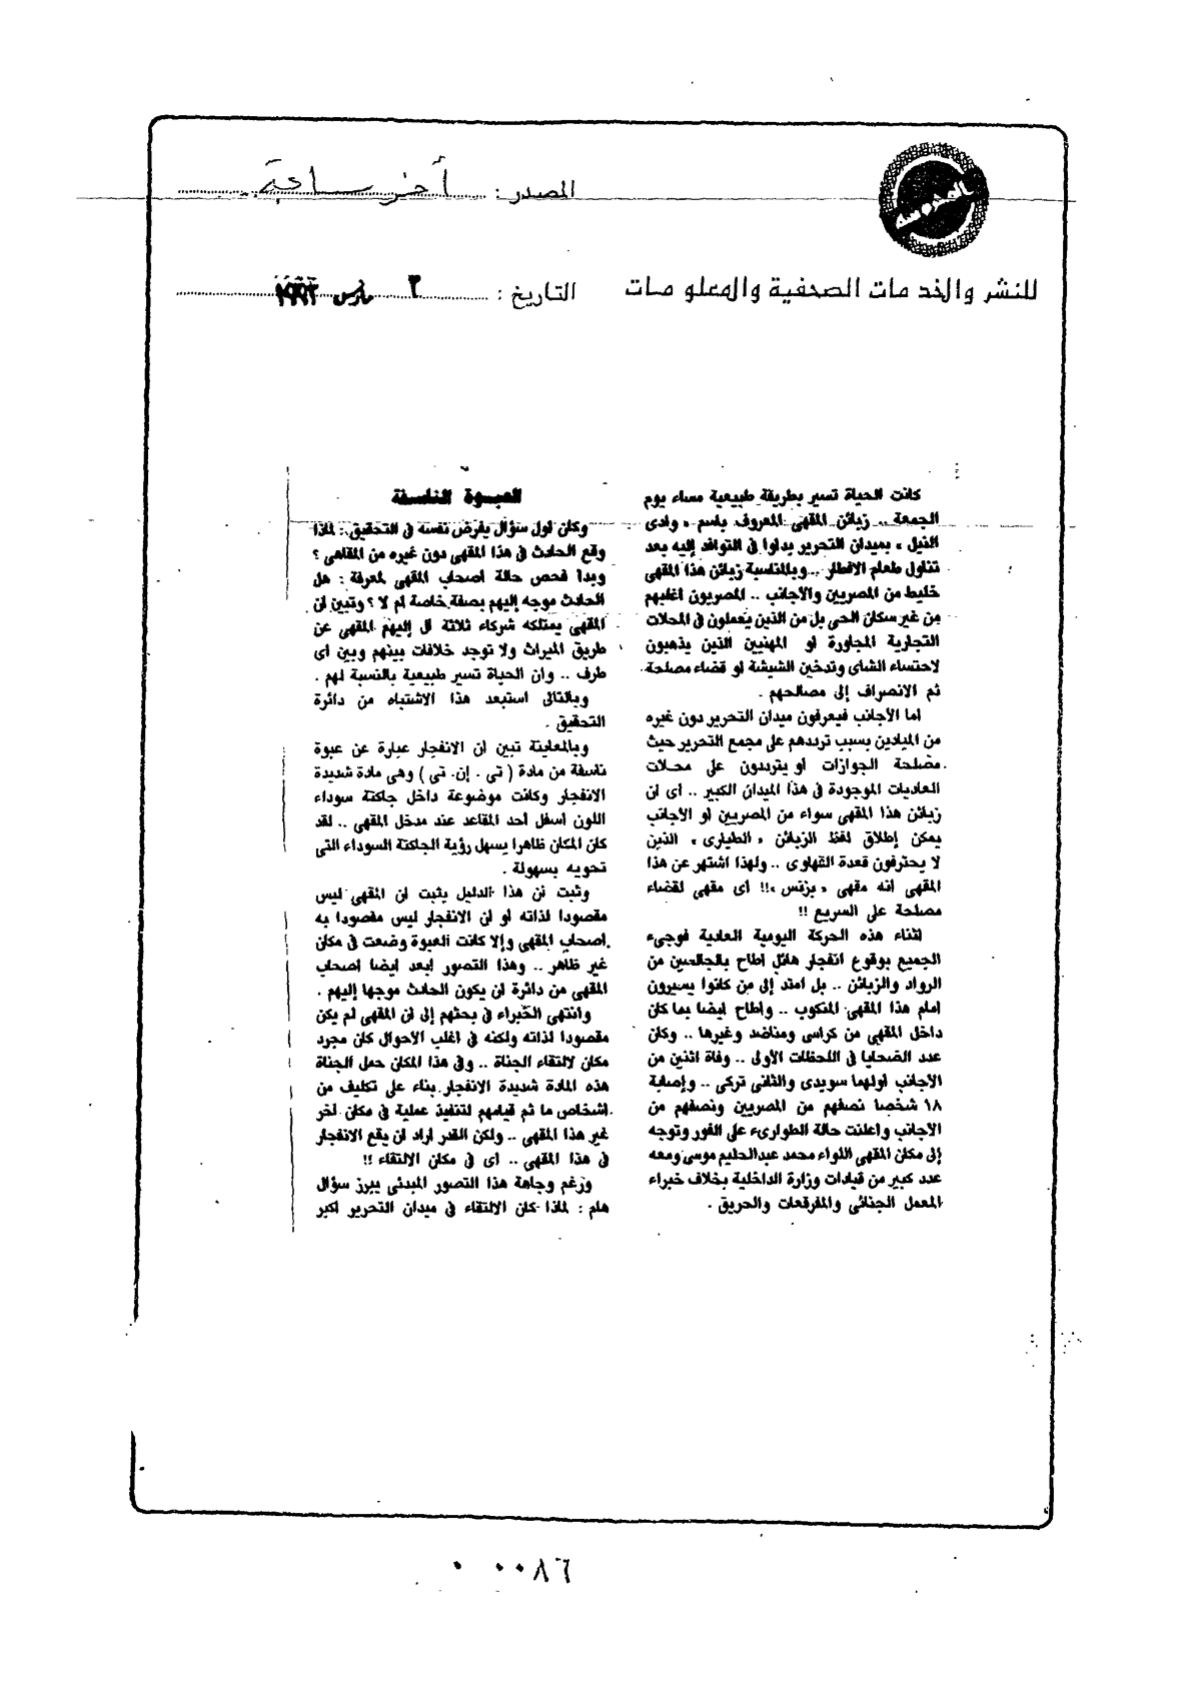 المصدر : أخر ساعة
المحروسة
للنشر والخدمات الصحفية والمعلومات
التاريخ : ٣ مارس ١٩٩٣
كانت الحياة تسير بطريقة طبيعية مساء يوم
الجمعة .. زبائن المقهى المعروف باسم « وادى
النيل » بميدان التحرير بدلوا فى التوافد إليه بعد
تناول طعام الافطار .. وبالمناسبة زبائن هذا المقهى
خليط من المصريين والأجانب .. المصريون اغلبهم
من غير سكان الحى بل من الذين يعملون فى المحلات
التجارية المجاورة او المهنيين الذين يذهبون
لاحتساء الشاى وتدخين الشيشة او قضاء مصلحة
ثم الانصراف إلى مصالحهم .
اما الأجانب فيعرفون ميدان التحرير دون غيره
من الميادين بسبب ترددهم على مجمع التحرير حيث
مصلحة الجوازات او يترددون على محلات
العاديات الموجودة فى هذا الميدان الكبير .. اى ان
زبائن هذا المقهى سواء من المصريين او الأجانب
يمكن إطلاق لفظ الزبائن « الطيارى » الذين
لا يحترفون قعدة القهاوى .. ولهذا اشتهر عن هذا
المقهى انه مقهى « بزنس »!! اى مقهى لقضاء
مصلحة على السريع !!
اثناء هذه الحركة اليومية العادية فوجىء
الجميع بوقوع انفجار هائل اطاح بالجالسين من
الرواد والزبائن .. بل امتد إلى من كانوا يسيرون
امام هذا المقهى المنكوب .. واطاح ايضا بما كان
داخل المقهى من كراسى ومناضد وغيرها .. وكان
عدد الضحايا فى اللحظات الأولى .. وفاة اثنين من
الأجانب اولهما سويدى والثانى تركى .. وإصابة
١٨ شخصا نصفهم من المصريين ونصفهم من
الأجانب واعلنت حالة الطوارىء على الفور وتوجه
إلى مكان المقهى اللواء محمد عبدالحليم موسى ومعه
عدد كبير من قيادات وزارة الداخلية بخلاف خبراء
المعمل الجنائى والمفرقعات والحريق .
العبوة الناسفة
وكان اول سؤال يفرض نفسه فى التحقيق : لماذا
وقع الحادث فى هذا المقهى دون غيره من المقاهى ؟
وبدا فحص حالة اصحاب المقهى لمعرفة : هل
الحادث موجه إليهم بصفة خاصة ام لا ؟ وتبين ان
المقهى يمتلكه شركاء ثلاثة ال إليهم المقهى عن
طريق الميراث ولا توجد خلافات بينهم وبين اى
طرف .. وان الحياة تسير طبيعية بالنسبة لهم .
وبالتالى استبعد هذا الاشتباه من دائرة
التحقيق .
وبالمعاينة تبين ان الانفجار عبارة عن عبوة
ناسفة من مادة ( تى . إن. تى ) وهى مادة شديدة
الانفجار وكانت موضوعة داخل جاكتة سوداء
اللون اسفل احد المقاعد عند مدخل المقهى .. لقد
كان المكان ظاهرا يسهل رؤية الجاكتة السوداء التى
تحويه بسهولة .
وثبت ان هذا الدليل يثبت ان المقهى ليس
مقصودا لذاته او ان الانفجار ليس مقصودا به
اصحاب المقهى وإلا كانت العبوة وضعت فى مكان
غير ظاهر .. وهذا التصور ابعد ايضا اصحاب
المقهى من دائرة ان يكون الحادث موجها إليهم .
وانتهى الخبراء فى بحثهم إلى ان المقهى لم يكن
مقصودا لذاته ولكنه فى اغلب الأحوال كان مجرد
مكان لالتقاء الجناة .. وفى هذا المكان حمل الجناة
هذه المادة شديدة الانفجار بناء على تكليف من
اشخاص ما ثم قيامهم لتنفيذ عملية فى مكان اخر
غير هذا المقهى .. ولكن القدر اراد ان يقع الانفجار
فى هذا المقهى .. اى فى مكان الالتقاء !!
ورغم وجاهة هذا التصور المبدئى يبرز سؤال
هام : لماذا كان الالتقاء فى ميدان التحرير اكبر
٠ ٠٠٨٦